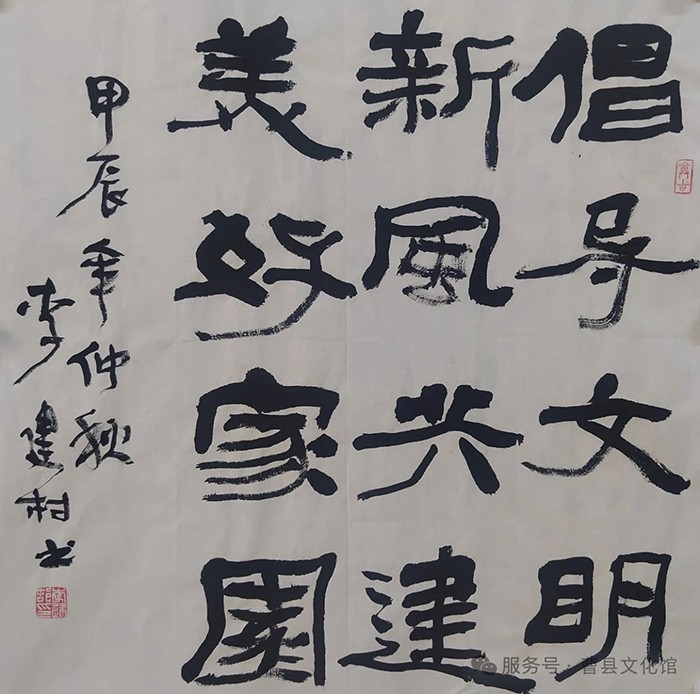 倡导文明
新风共建
美好家园
甲辰年仲秋
李建村书
服务号·曹县文化馆